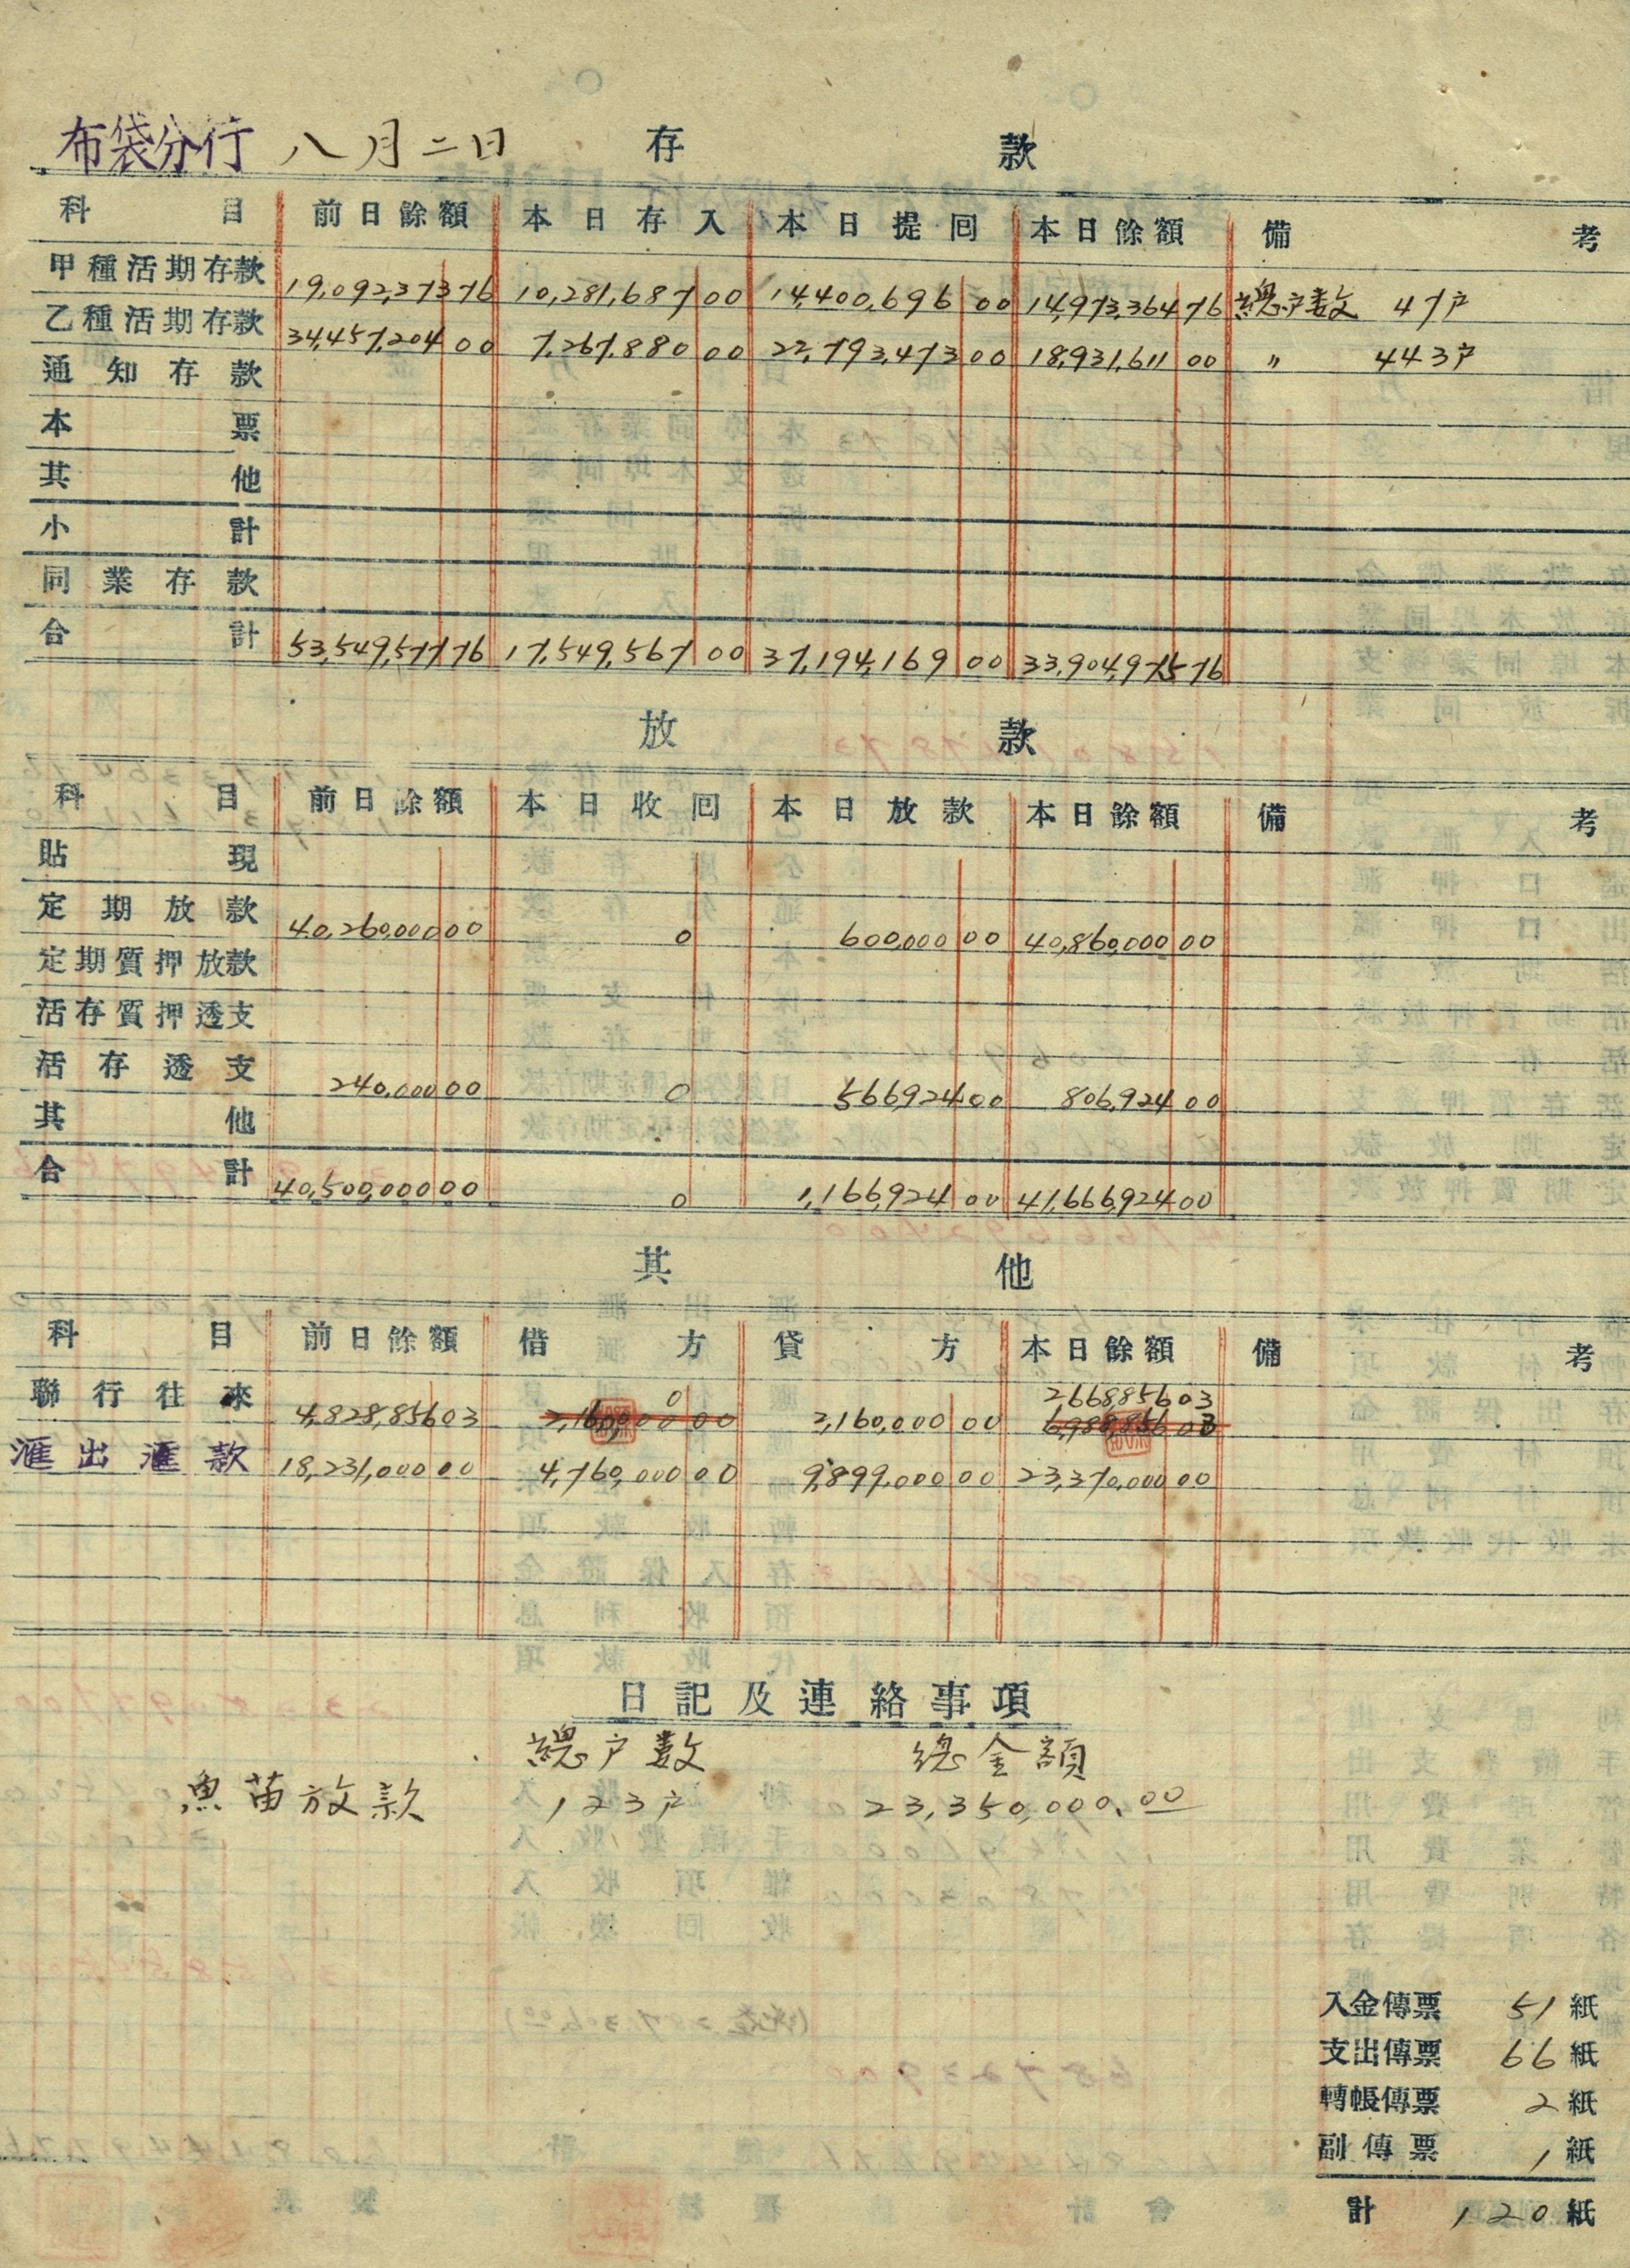 布袋分行 八月二日 存 款
科 目 前日餘額 本日存入 本日提回 本日餘額 備 考
甲種活期存款 19,092,373 76 10,281,687 00 14,400,696 00 14,973,364 76 總户数 47户
乙種活期存款 34,457,204 00 7,267,880 00 22,793,473 00 18,931,611 00 〃 443户
通知存款
本 票
其 他
小 計
同業存款
合 計 53,549,577 76 17,549,567 00 37,194,169 00 33,904,975 76
放 款
科 目 前日餘額 本日收回 本日放款 本日餘額 備 考
貼 現
定期放款 40,260,000 00 0 600,000 00 40,860,000 00
定期質押放款
活存質押透支
活存透支 240,000 00 0 566,924 00 806,924 00
其 他
合 計 40,500,000 00 0 1,166,924 00 41,666,924 00
其 他
科 目 前日餘額 借 方 貸 方 本日餘額 備 考
0 2,668,856 03
聯行往來 4,828,856 03 2,160,000 00 2,160,000 00 6,988,856 03
滙出滙款 18,231,000 00 4,760,000 00 9,899,000 00 23,370,000 00
日記及連絡事項
總户数 總金額
魚苗放款 123户 23,350,000.00
入金傳票 51紙
支出傳票 66紙
轉帳傳票 2紙
副傳票 1紙
計 120紙